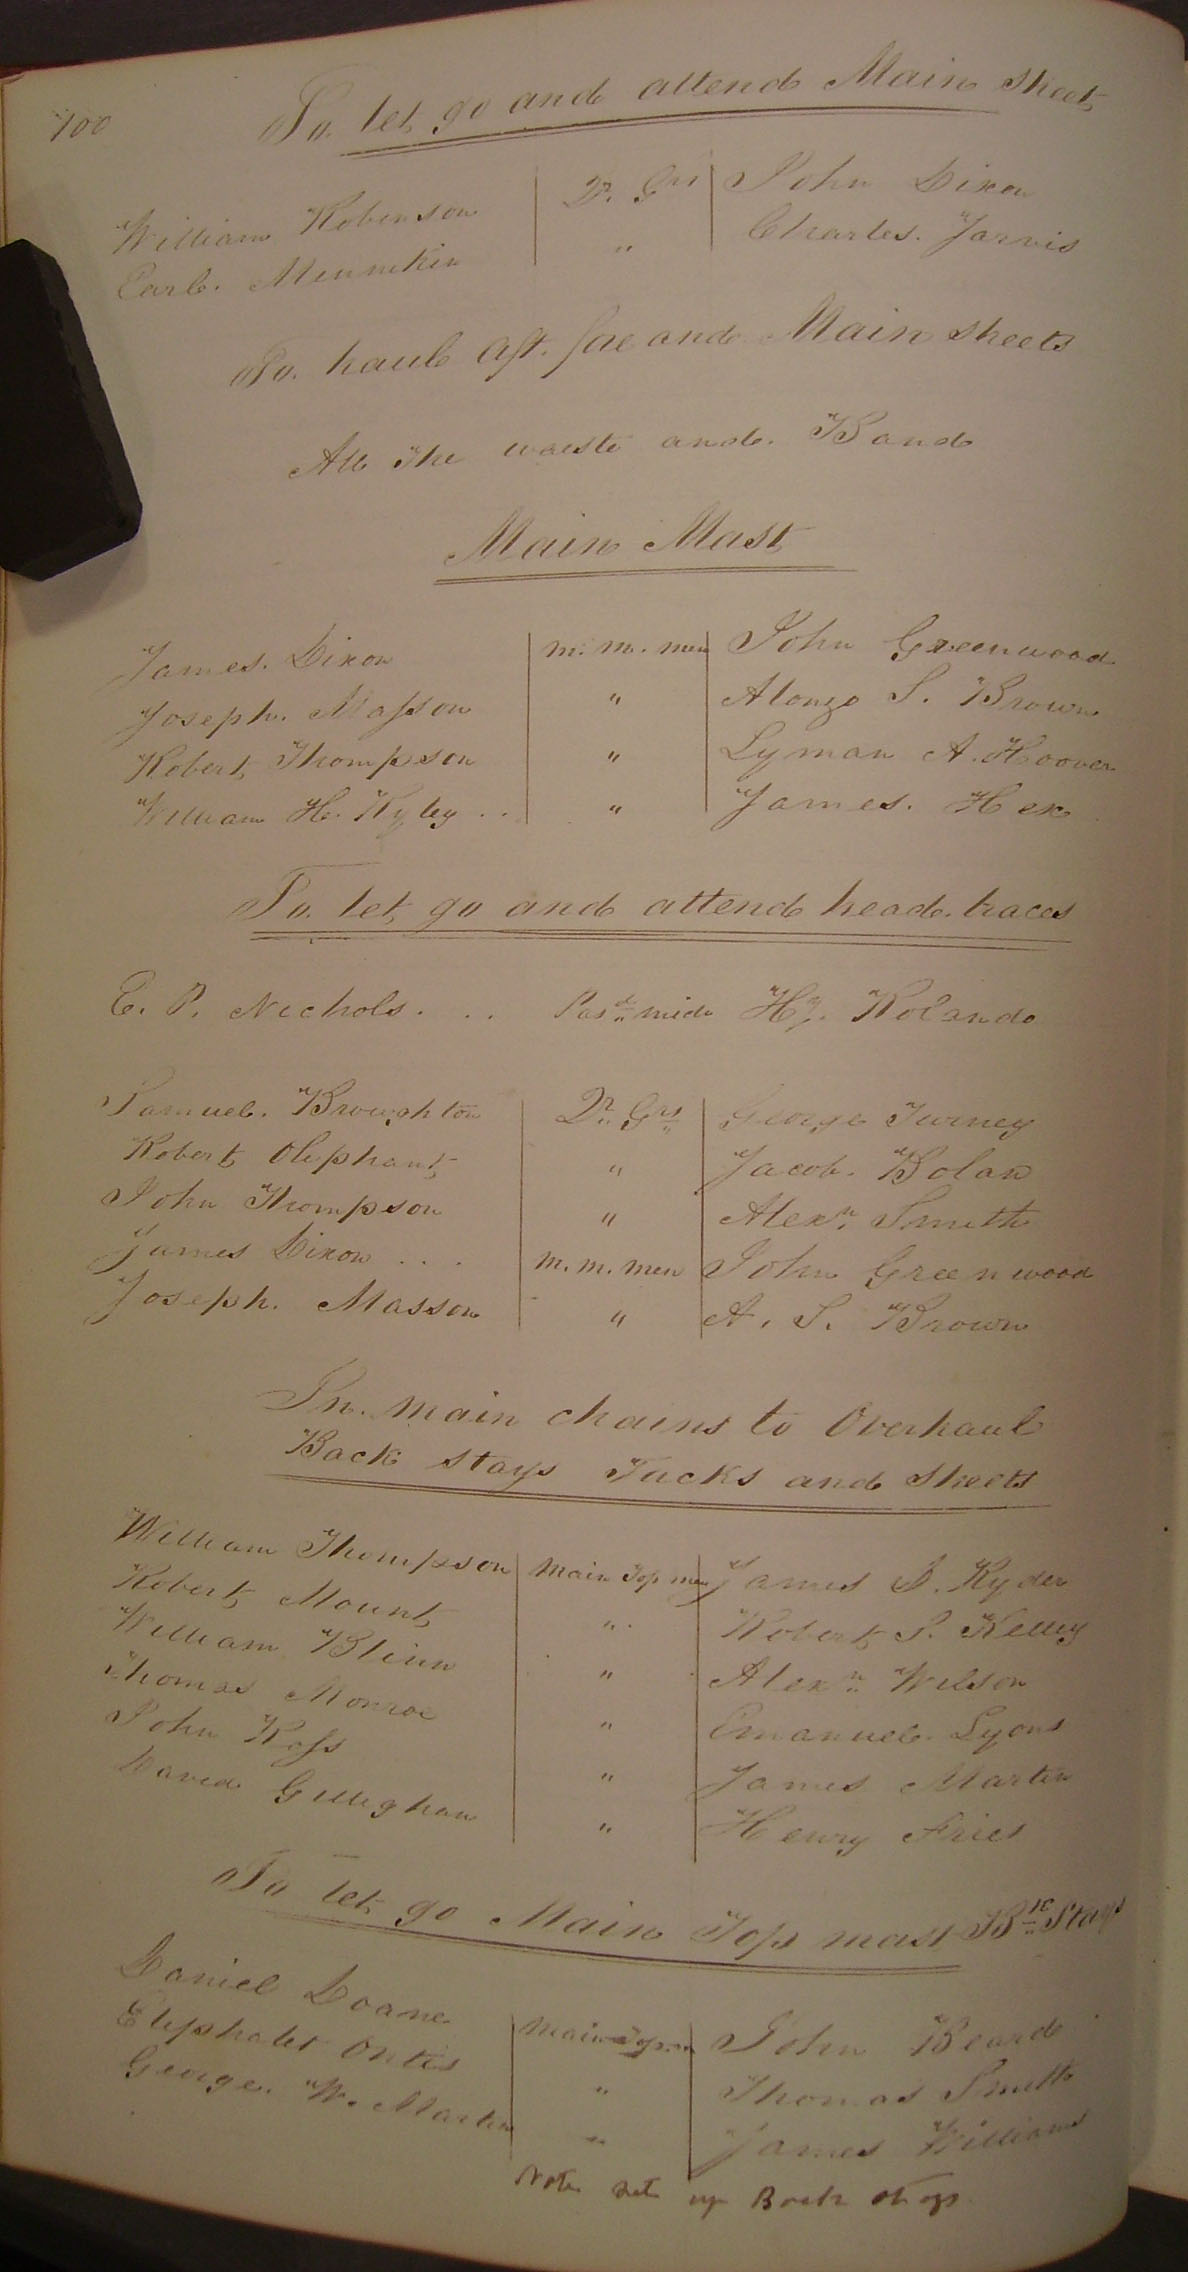 100
To. let go and attend Main Sheet
William Robinson Qr. Grs John Dixon
Earl. Mennikin " Charles. Jarvis
To. haul aft. fore and Main sheets
All the waiste and. Band
Main Mast
James. Dixon m. m. men John Greenwood
Joseph. Masson " Alonzo S. Brown
Robert Thompson " Lyman A. Hoover
William H. Kyley . . " James. Hex
To. let go and attend head. braces
E. P. Nichols. . . Pasd mid Hy. Rolando
Samuel. Broughton Qr. Grs George Turney
Robert Oliphant " Jacob. Bolan
John Thompson " Alexr. Smith
James Dixon . . . m. m. men John Greenwood
Joseph. Masson " A. S. Brown
In. main chains to Overhaul
Back stays Tacks and Sheets
William Thompson Main Top men James D. Ryder
Robert Mount " Robert S. Kelley
William Blinn " Alexr. Wilson
Thomas Monroe " Emanuel. Lyons
John Ross " James Martin
David Gilleghan " Henry Fries
To let go Main Top mast Bk Stays
Daniel Doane Main Top m John Beard
Eliphalet Ontis " Thomas Smith
George. W. Martin " James Williams
Note set up Back stays